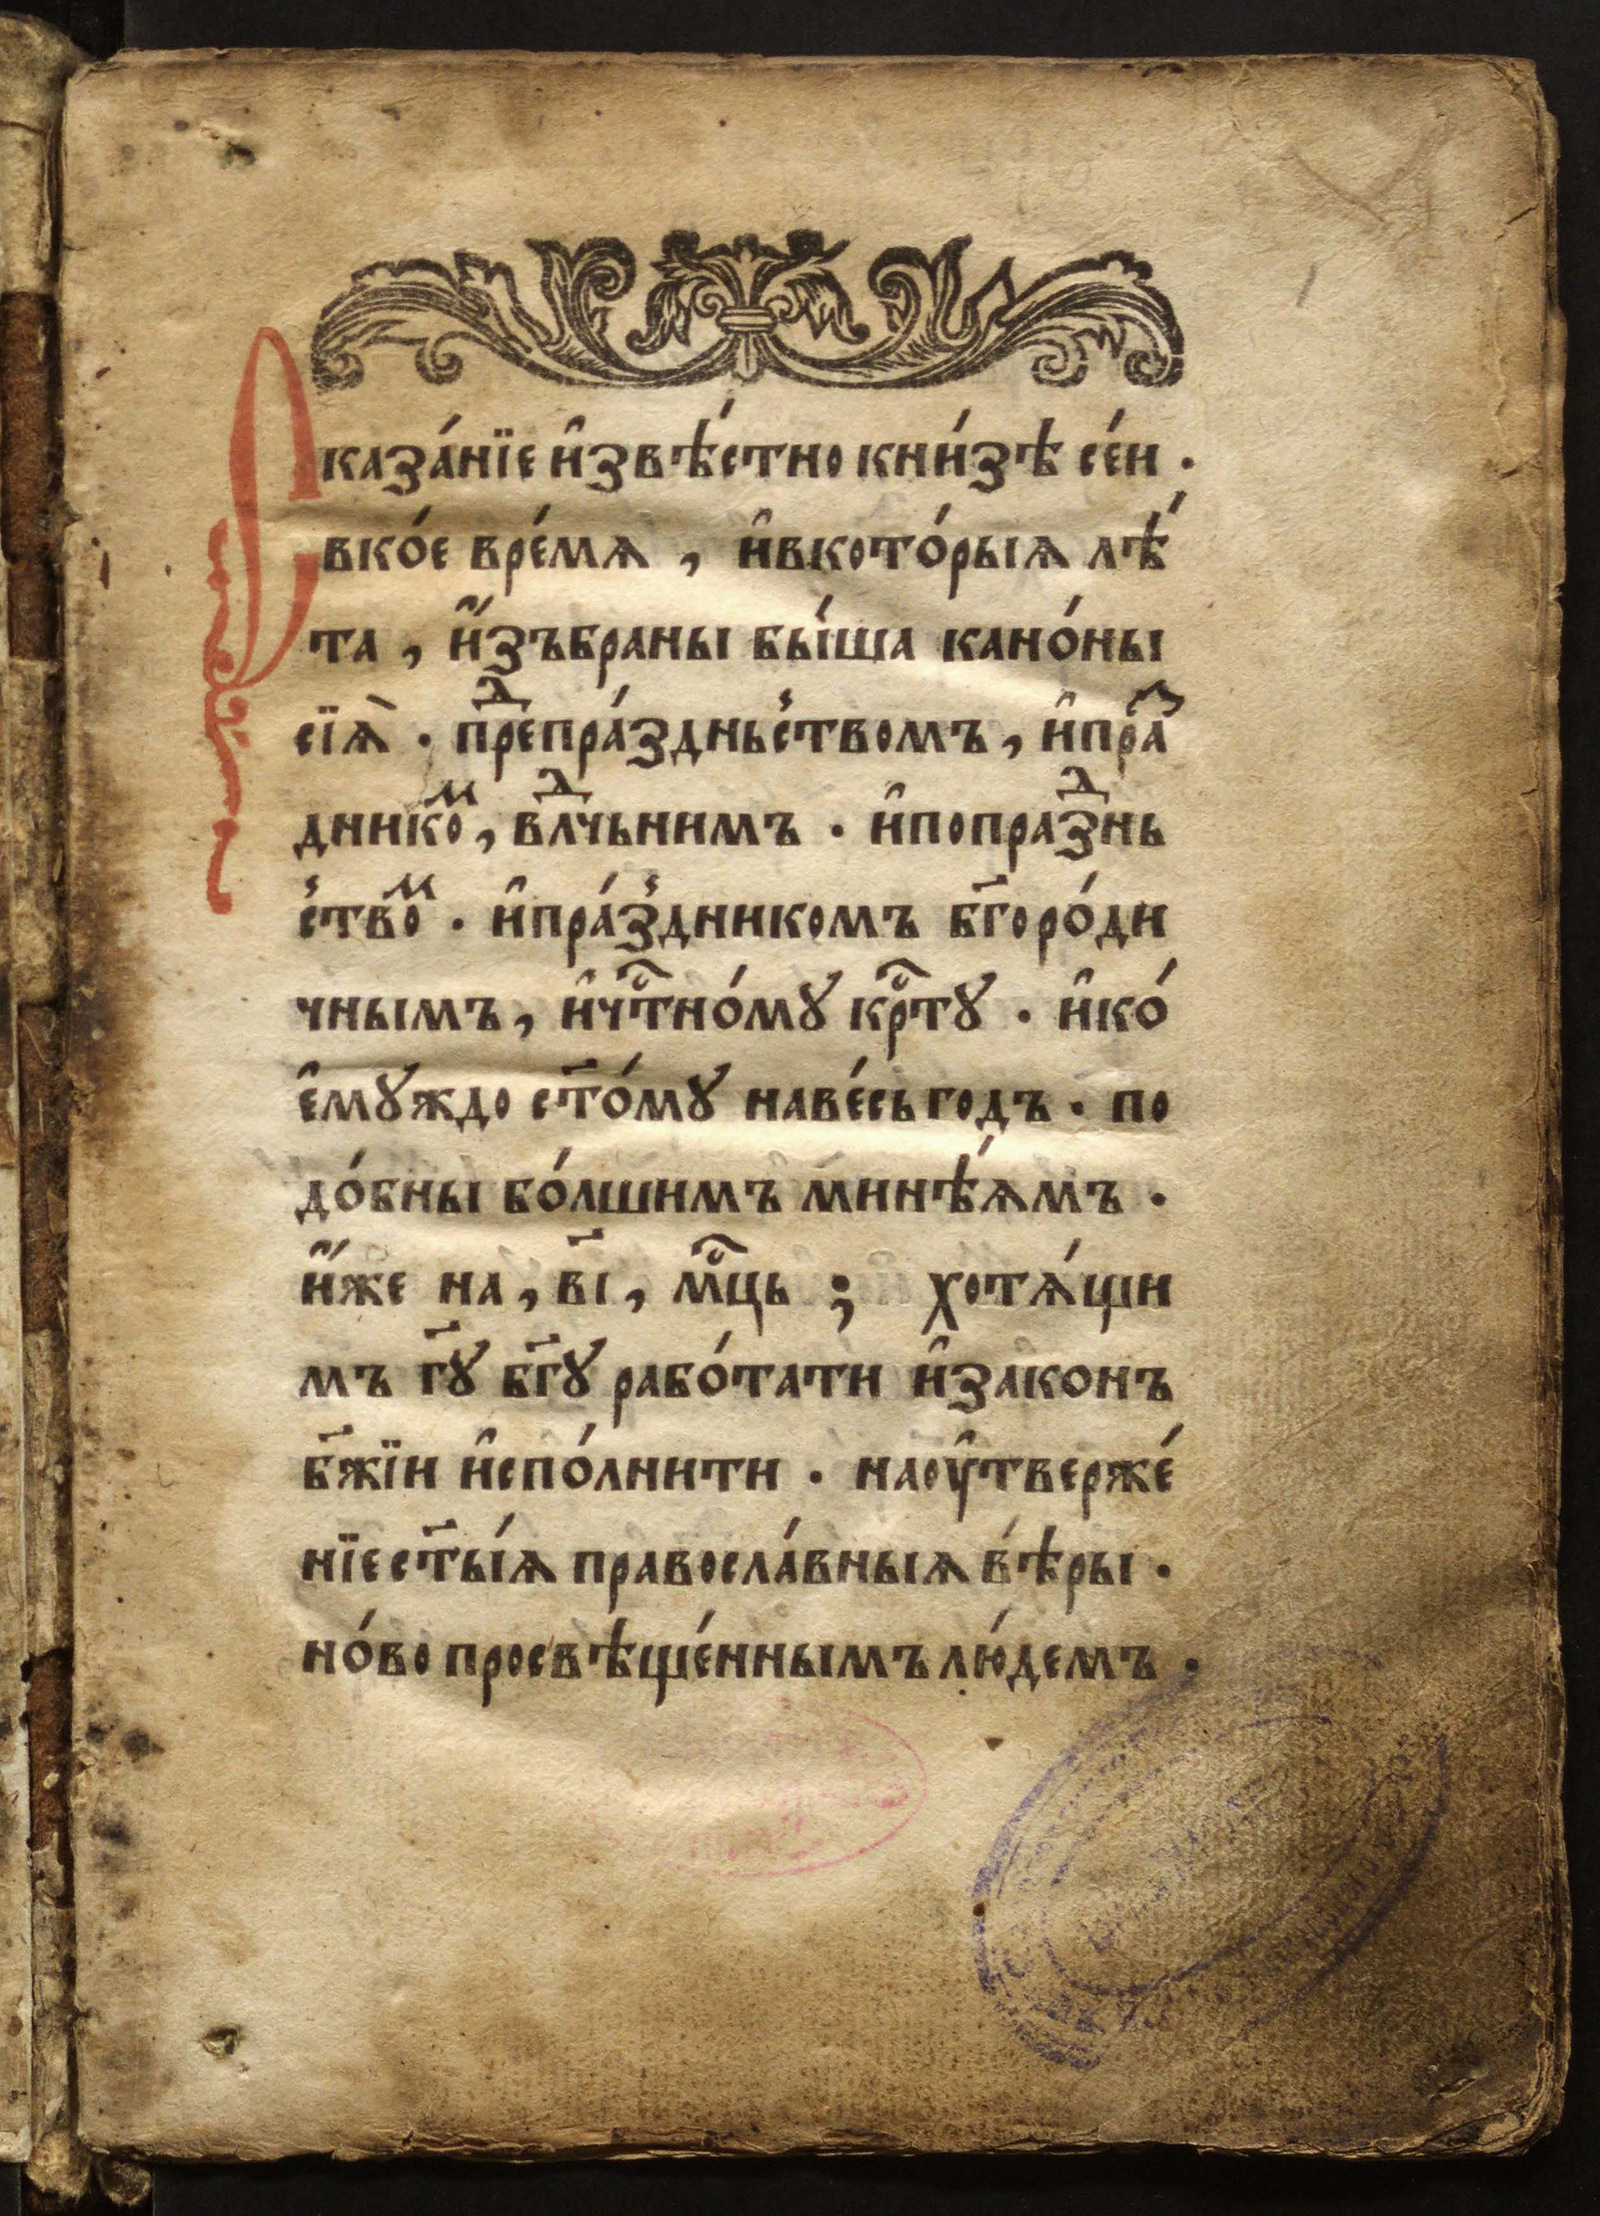 Сказа́нїе и҆звѣ́стно кни́зѣ се́и .
вко́е вре́мѧ , и҆вкото́рыѧ лѣ́
та , и҆́зъбраны бы́ша кано́ны
сїѧ̀ . преⷣпра́здньствомъ , и҆праⷥ
дникоⷨ , влⷣчьнимъ . и҆попразⷣнь
ствоⷨ . и҆пра́здникомъ бг҃оро́ди
чнымъ , и҆чⷭ҇тно́мꙋ крⷭ҇тꙋ . и҆ко́
є҆мꙋждо ст҃о́мꙋ наве́сь годъ . по
до́бны бо́лшимъ минѣ́ѧмъ .
и҆́же на , в҃і , мⷭ҇ць ; хотѧ́щи
мъ гд҃ꙋ бг҃ꙋ рабо́тати и҆законъ
бж҃їи и҆спо́лнити . наоу҆тверже́
нїе ст҃ы́ѧ правосла́вныѧ вѣ́ры .
но́во просвѣще́ннымъ лю́демъ .